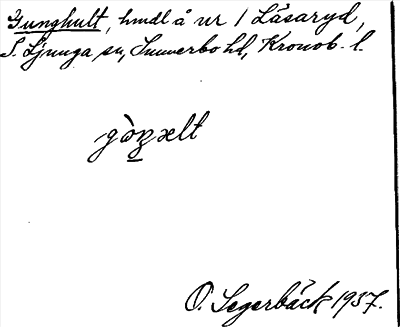 Gunghult, hmdl å nr 1 Läsaryd,
S. Ljunga sn, Sunnerbo hd, Kronob. l.
gòn̠əlt
O. Segerbäck 1937.